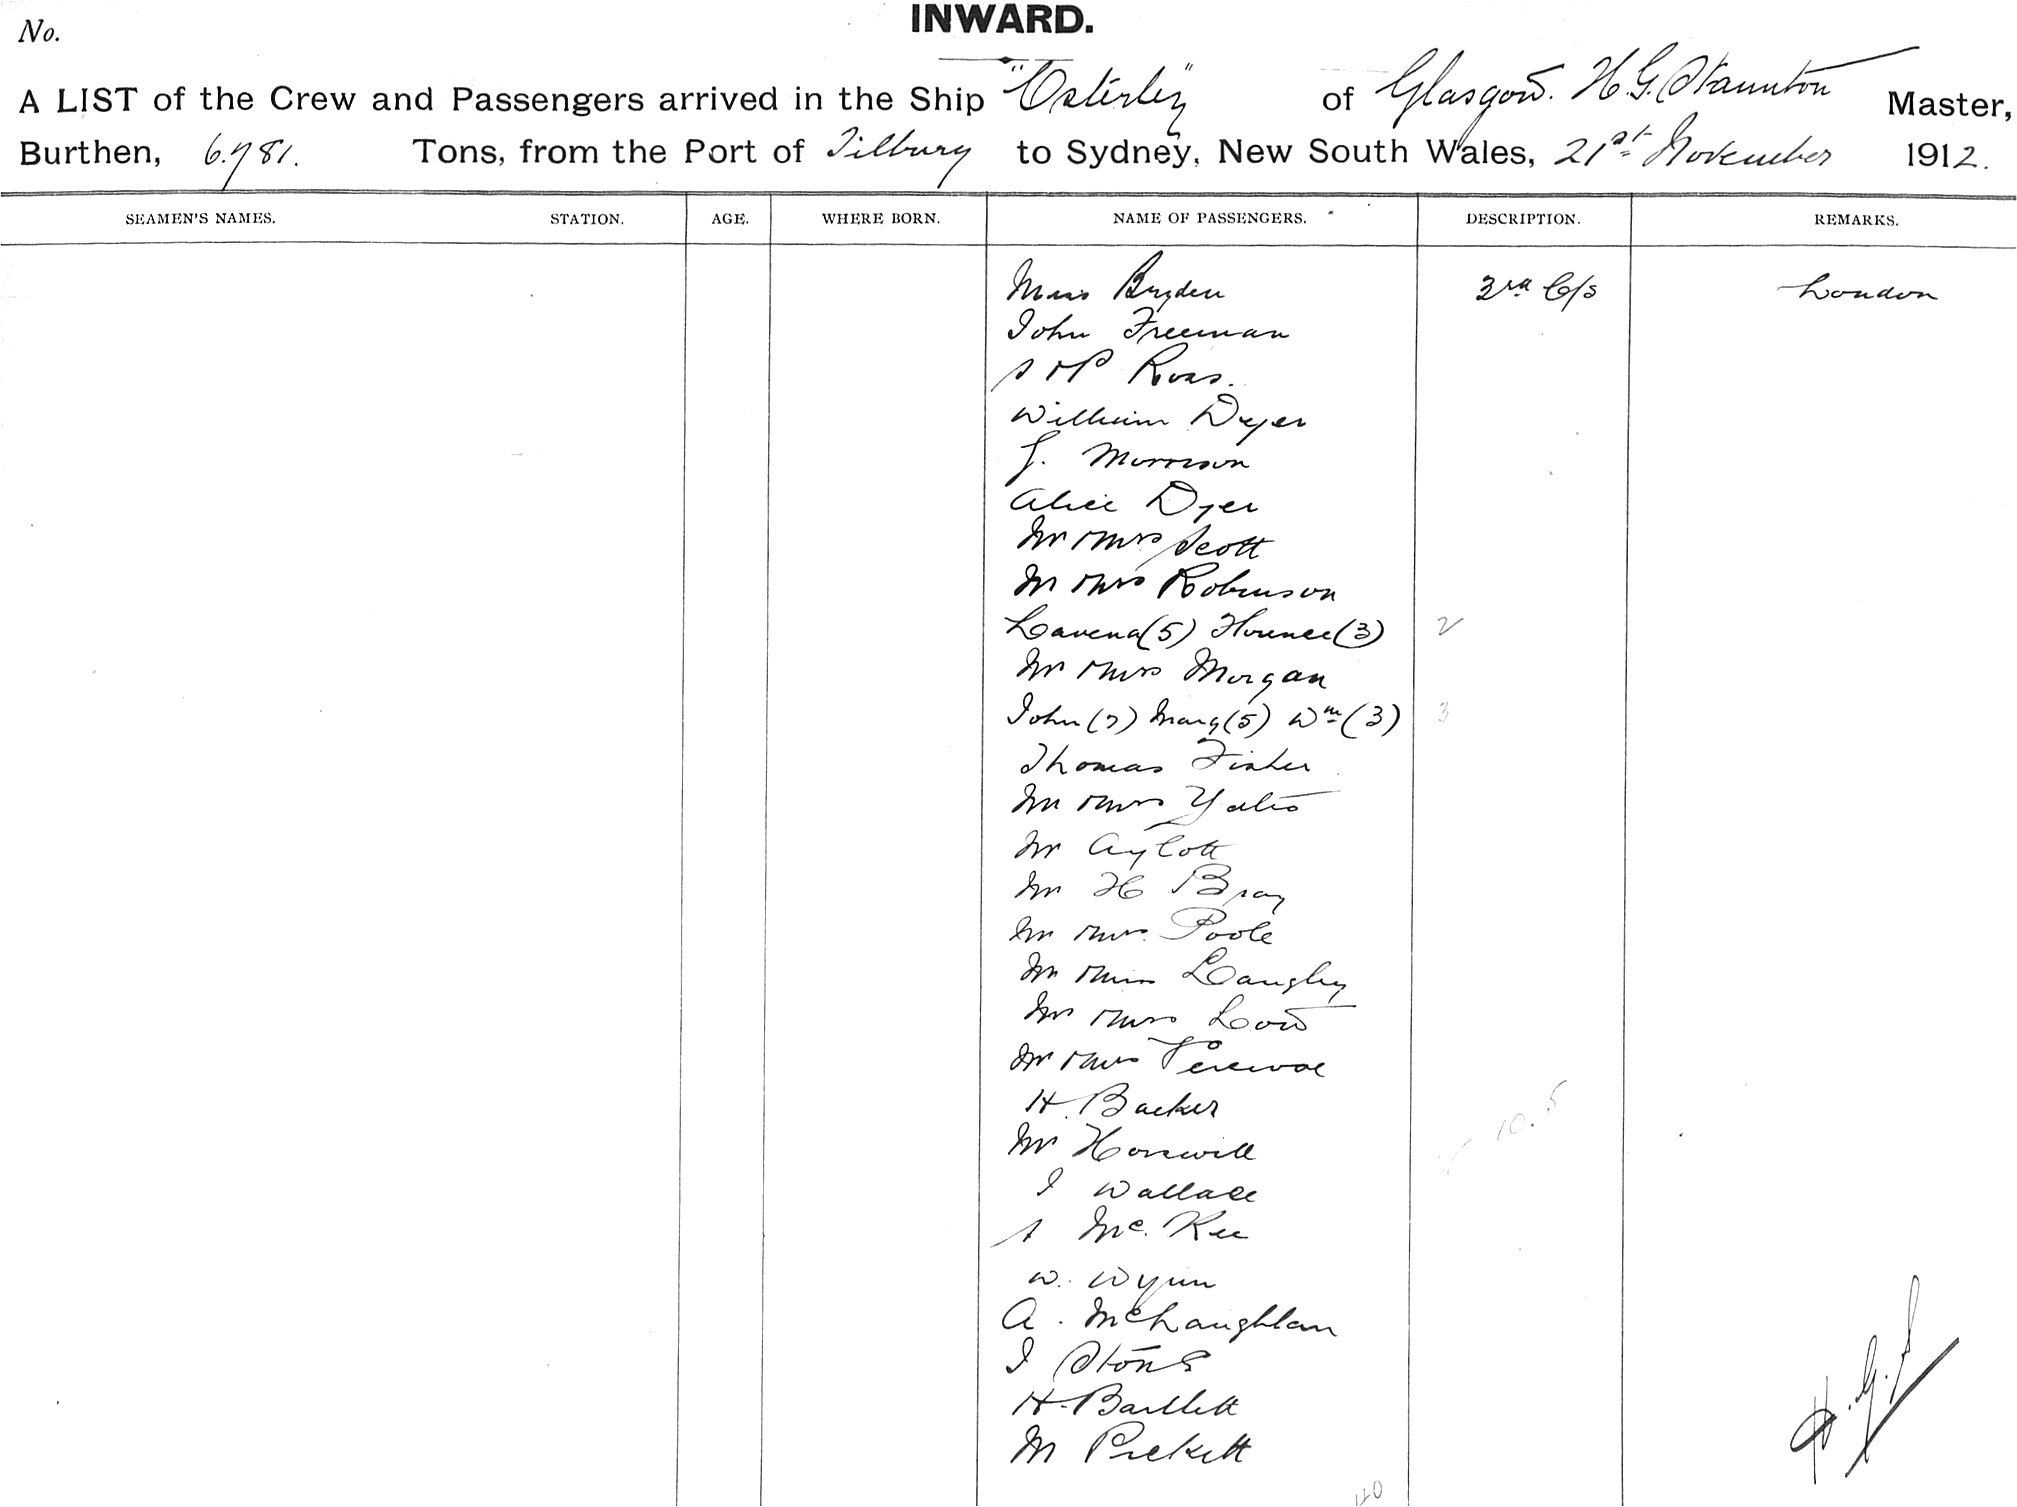 INWARD.
No.
A LIST of the Crew and Passengers arrived in the Ship "Osterley" of Glasgow. H.G. Staunton Master,
Burthen, 6.781. Tons, from the Port of Tilbury to Sydney, New South Wales, 21st November 1912.
SEAMEN'S NAMES. STATION. AGE. WHERE BORN. NAME OF PASSENGERS. DESCRIPTION. REMARKS.
Miss Bryden 3rd C/s London
John Freeman
Ross.
William Dyer
J. Morrison
Alice Dyer
Mr & Mrs Scott
Mr & Mrs Robinson
Lavena (5) Florence (3) 2
Mr & Mrs Morgan
John (7) Marg (5) Wm (3) 3
Thomas Fisher
Mr & Mrs Yates
Mr Aylott
Mr H Bray
Mr & Mrs Poole
Mr & Miss Langley
Mr & Mrs Low
Mr & Mrs
H. Backer
Mr Horswill
I Wallace
S McKee
W. Wynn
A. McLaughlan
I Stone
H. Bartlett
M Pickett
10.5
40